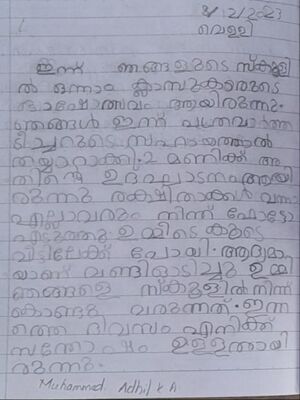 8/12/2023
വെള്ളി
ഇന്ന് ഞങ്ങളുടെ സ്കൂളി
ൽ ഒന്നാം ക്ലാസുകാരുടെ
ഭാഷോത്സവം ആയിരുന്നു.
ഞങ്ങൾ ഇന്ന് പത്രവാർത്ത
ടീച്ചറുടെ സഹായത്താൽ
തയ്യാറാക്കി. 2 മണിക്ക് അ
തിൻ്റെ ഉദ്ഘാടനം ആയി
രുന്നു രക്ഷിതാക്കൾ വന്നു
എല്ലാവരും നിന്ന് ഫോട്ടോ
എടുത്തു ഉമ്മിടെ കൂടെ
വീട്ടിലേക്ക് പോയി. ആദ്യമാ
യാണ് വണ്ടിഓടിച്ചു ഉമ്മി
ഞങ്ങളെ സ്കൂളിൽ നിന്ന്
കൊണ്ടു വരുന്നത്. ഇന്ന
ത്തെ ദിവസം എനിക്ക്
സന്തോഷം ഉള്ളതായി
രുന്നു.
Muhammed Adhil K A